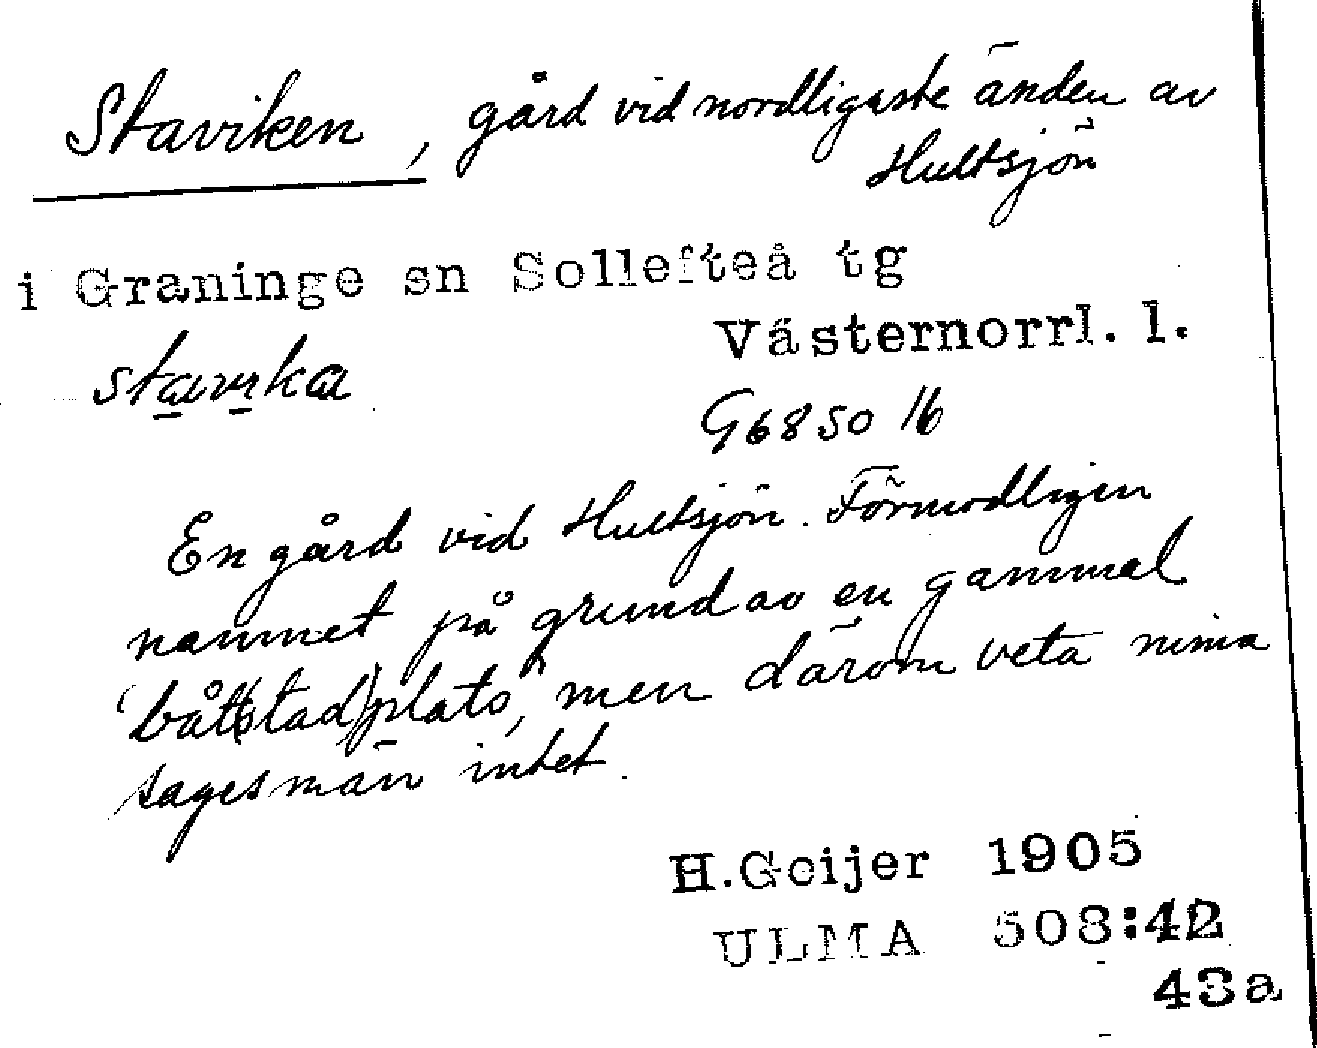 Staviken, gård vid nordligaste änden av
Hultsjön
i Graninge sn Sollefteå tg
Västernorrl. l.
stavika
G6850 16
En gård vid Hultsjön. Förmodligen
namnet på grund av en gammal
båt(stad)plats, men därom veta mina
sagesmän intet.
H.Geijer 1905
ULMA 508:42
43a